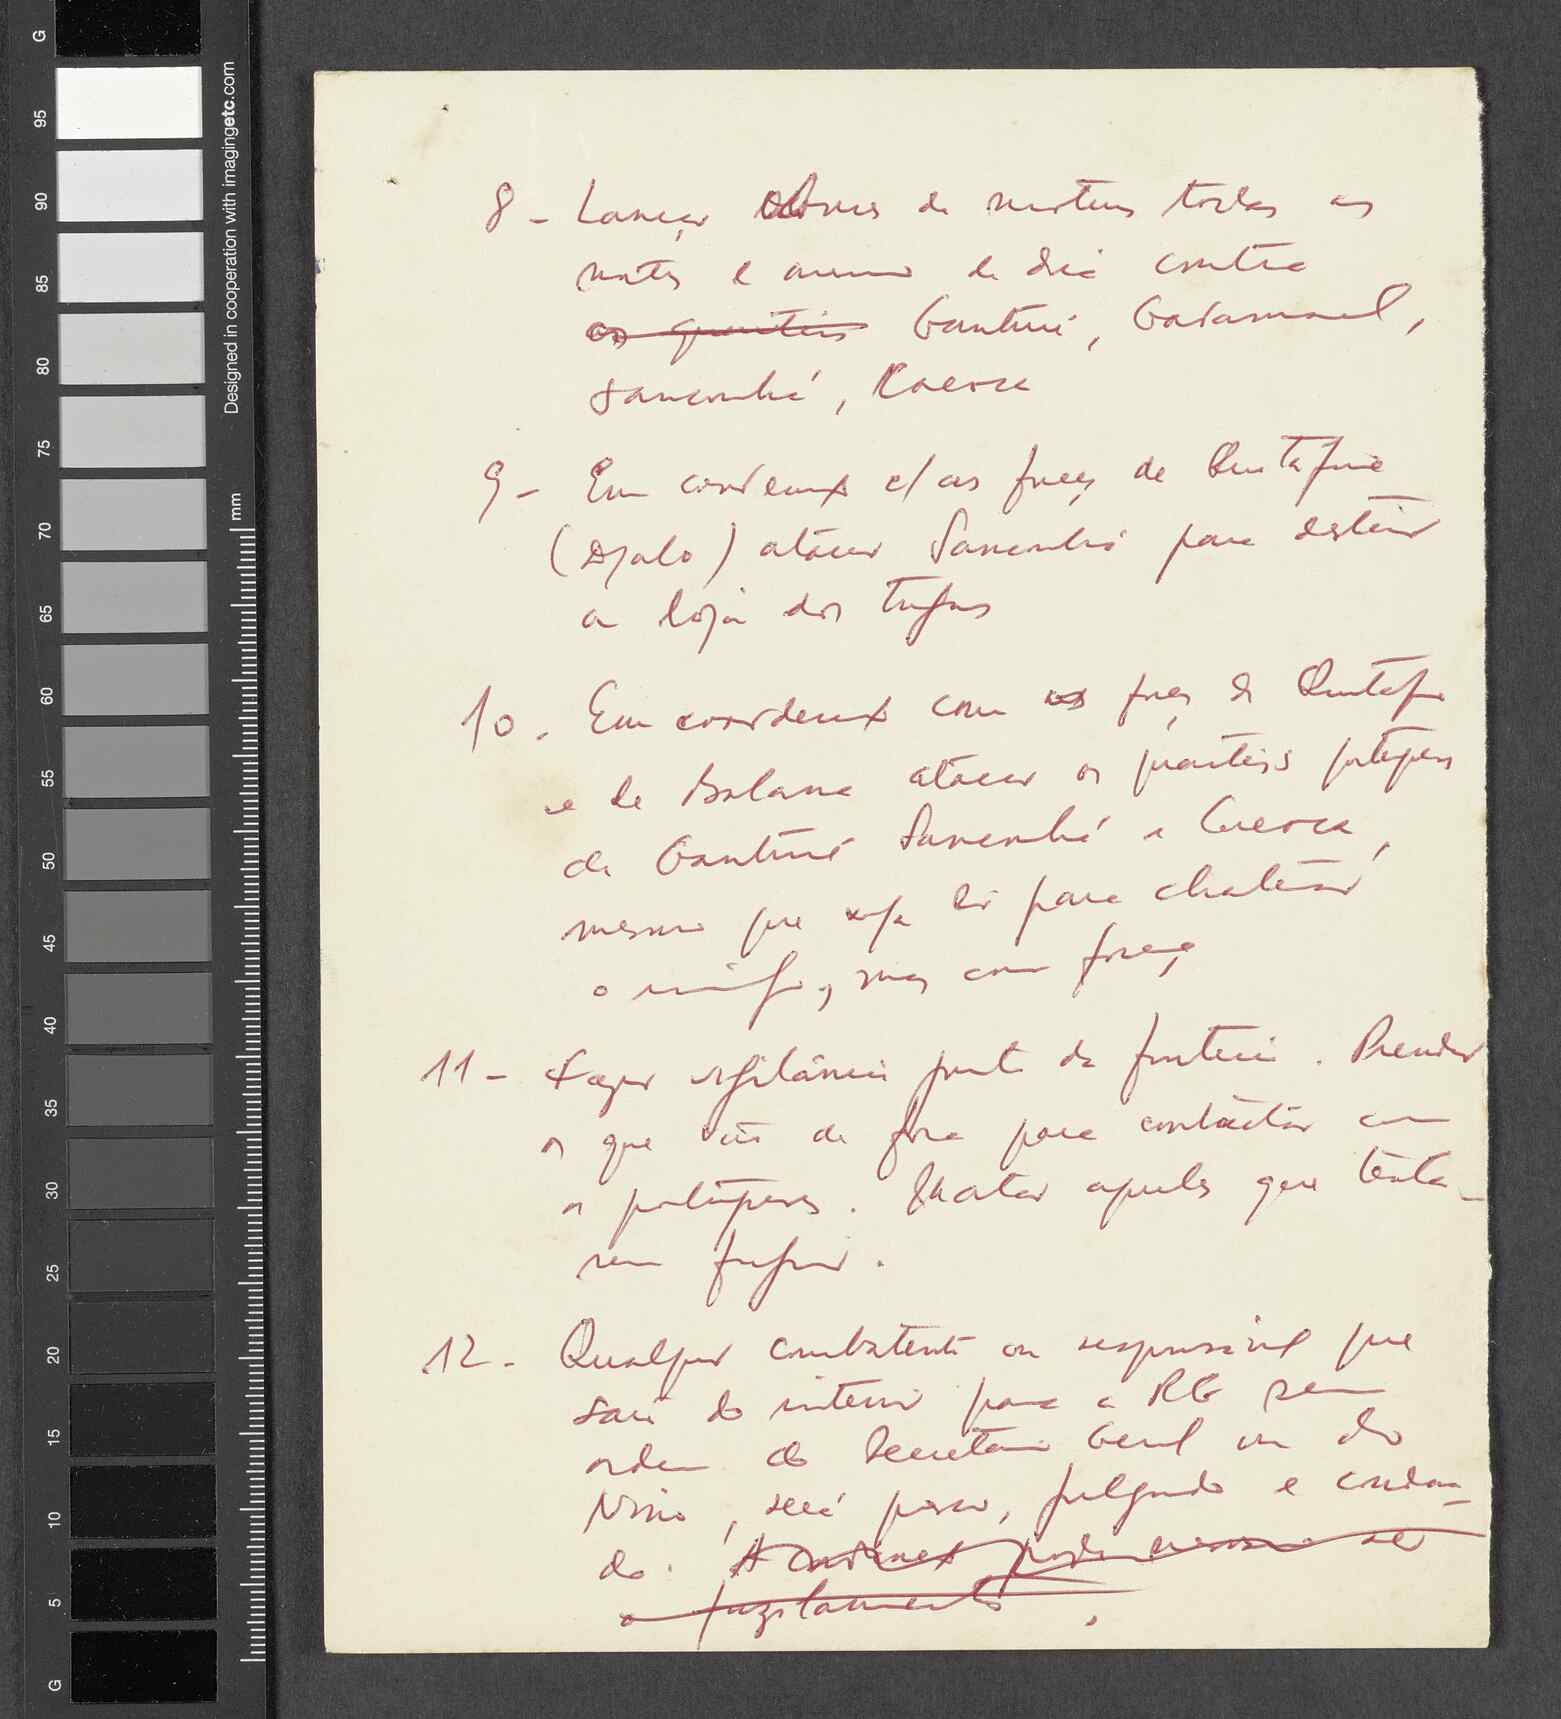 8 - Lançar obuses de morteiros todas as
noites e mesmo de dia contra
os quarteis Ganturé, Gadamael,
Sanconhá, Kacoca
9 - Em coordenação c/ as forças de Quitafine
(Djalo) atacar Sanconhá para destruir
a loja dos tugas
10 - Em coordenação com as forças de Quitafine
e de Balana atacar os quarteis portugueses
de Ganturé Sanconhá e Cacoca,
mesmo que seja só para chatear
o inimigo, mas com força
11 - Fazer vigilância junto da fronteira. Prender
os que vão de fora para contactar com
os portugueses. Matar aqueles que tenta-
rem fugir.
12 - Qualquer combatente ou responsável que
sair do interior para a RG sem
ordem do Secretário Geral ou do
Nino, será preso, julgado e conden-
do. A condenação pode mesmo ser
o fuzilamento.
Designed in cooperation with imagingetc.com
mm
G
95
90
85
80
75
70
65
60
55
50
45
40
35
30
25
20
15
10
5
G